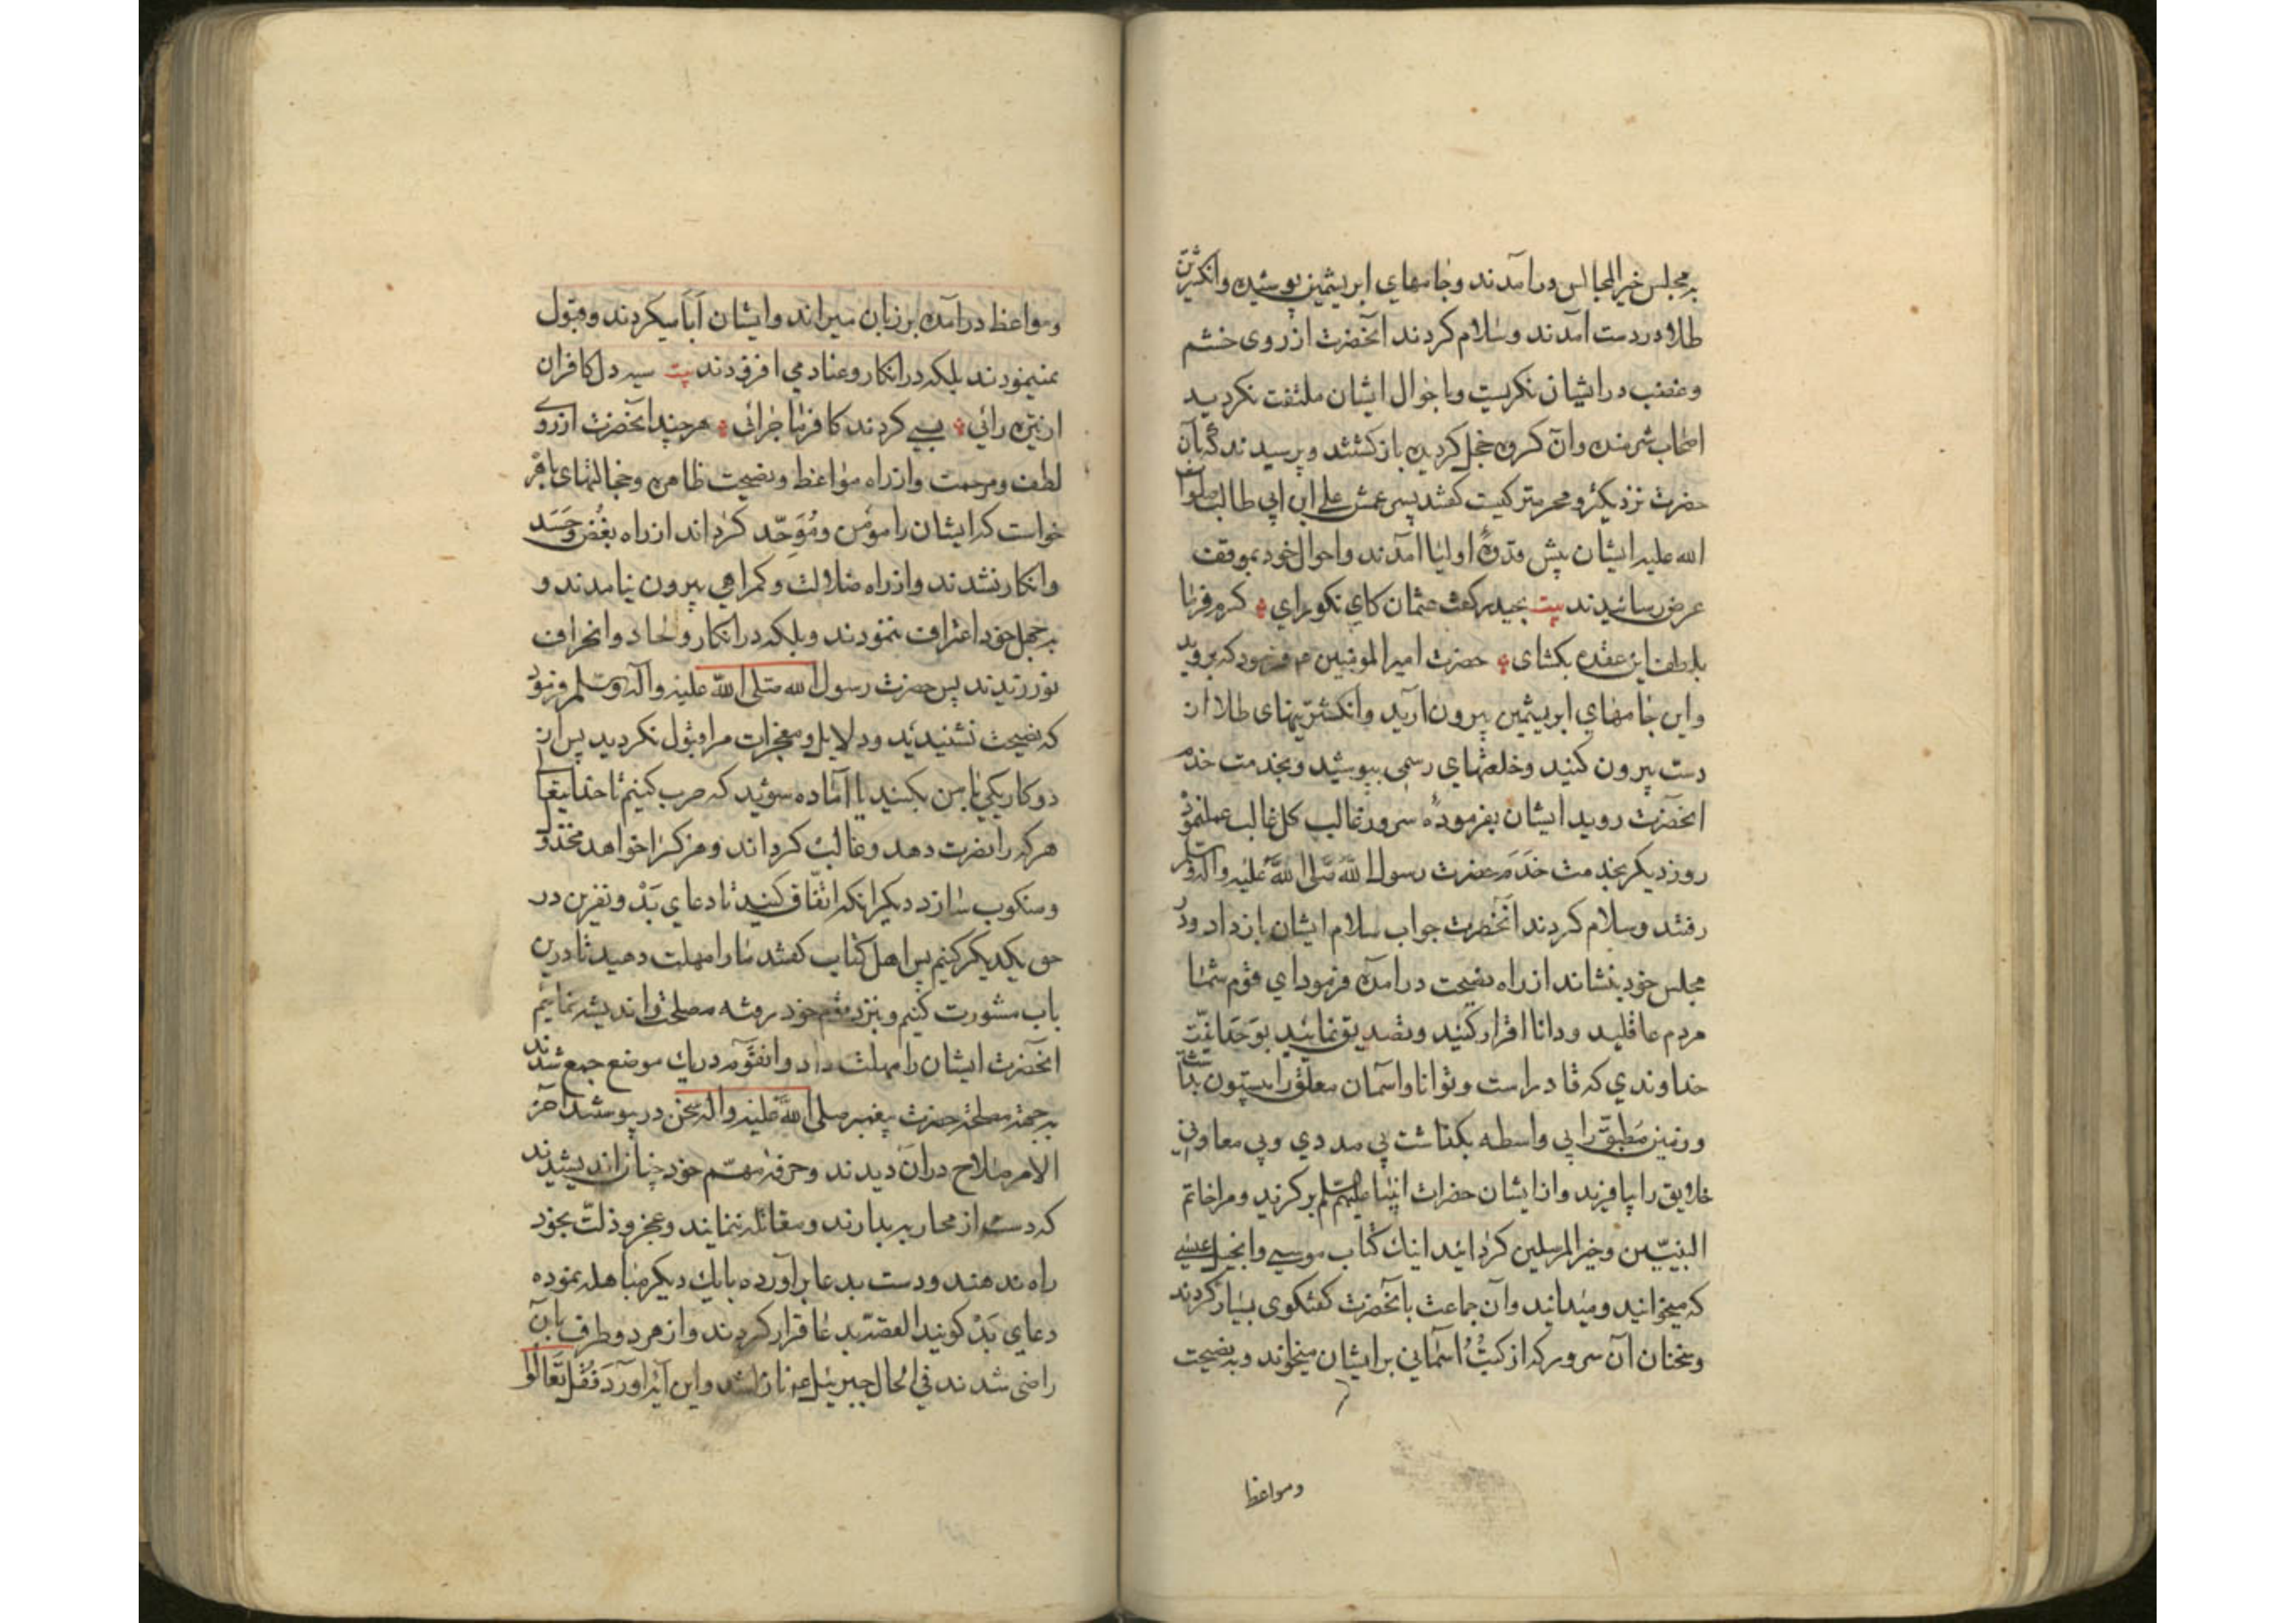 به مجلس خیر المجالس در آمدند وجامهای ابریشمین پوشیده وانگشترین
طلا در دست آمدند وسلام کردند آنحضرت از روی خشم
وغضب در ایشان نکریست وباحوال ایشان ملتفت نکردید
اصحاب شرمنده وآن کروه خجل کردیده باز کشتند وپرسیدند که بآن
حضرت نزدیکتر ومحرمتر کیست کفتند پسر عمش علی ابن ابی طالب صلوات
الله علیه ایشان پیش قدوهٔ اولیا آمدند واحوال خود بموقف
عرض رسانیدند بیت بحیدر کفت عثمان کای نکورای کرم فرما
بلطف این عقده بکشای حضرت امیر المومنین فرمود که بروید
واین جامهای ابریشمین بیرون آرید وانکشترینهای طلا از
دست بیرون کنید وخلعتهای رسمی بپوشید وبخدمت خدم
آنحضرت روید ایشان بفرمودهٔ سرور غالب کل غالب عمل نمود
روز دیکر بخدمت خدم حضرت رسول الله صلی الله علیه واله وسلم
رفتند وسلام کردند آنحضرت جواب سلام ایشان باز داد ودر
مجلس خود بنشاند از راه نصیحت در آمده فرمود ای قوم شما
مردم عاقلید ودانا اقرار کنید وتصدیق نمائید بوحدانیّت
خداوندی که قادر است وتوانا وآسمان معلق را بیستون بداشت
وزمین مطبّق را بی واسطه بکذاشت بی مددی وبی معاونی
خلایق را بیافرید واز ایشان حضرات انبیا علیهم السلم برکزید ومرا خاتم
النبیّین وخیر المرسلین کردانید اینك کتاب موسی وانجیل عیسی
که میخوانید ومیدانید وآن جماعت بآنحضرت کفتکوی بسیار کردند
وسخنان آن سرور که از کتُب آسمانی بر ایشان میخواند وبه نصیحت
ومواعظ
ومواعظ در آمده بر زبان میراند وایشان اَبا میکردند وقبول
نمینمودند بلکه در انکار وعناد می افزودند بیت سیه دل کافران
از تیره رائی بسی کردند کافر ماجرائی هر چند آنحضرت از روی
لطف ومرحمت واز راه مواعظ ونصیحت ظاهره وخجالتهای باهر
خواست که ایشان را مومن ومُوَحِّد کرداند از راه بغُض وحَسَد
وانکار نشدند واز راه ضلالت وکمراهی بیرون نیامدند و
به جهل خود اعتراف ننمودند وبلکه در انکار والحاد وانحراف
نورزیدند پس حضرت رسول الله صلی الله علیه واله وسلم فرمود
که نصیحت نشنیدید ودلایل ومعجزات مرا قبول نکردید پس از
دو کار یکی با من بکنید یا آماده شوید که حرب کنیم تا خدایتعا
هر که را نصرت دهد وغالب کرداند وهر کرا خواهد مخذول
ومنکوب سازد دیکر انکه اتّفاق کنید تا دعای بَدْ ونفرین در
حق یکدیکر کنیم پس اهل کتاب کفتند ما را مهلت دهید تا درین
باب مشورت کنیم وبنزد قوم خود رفته مصلحت واندیشه نماییم
آنحضرت ایشان را مهلت داد وآنقوم در یك موضع جمع شدند
به جهة مصلحة حضرت پیغمبر صلی الله علیه واله سخن در پیوستند آخر
الامر صلاح دران دیدند وحرفه مهمّ خود چنان اندیشیدند
که دست از محاربه بدارند ومقاتله ننمایند وعجز وذلّت بخود
راه ندهند ودست بدعا برآورده بایك دیکر مباهله نموده
دعای بَدْ کویند القصّه بدعا قرار کردند واز هر دو طرف بآن
راضی شدند فی الحال جبرئیل نازل شد واین آیه آورد فَقُل تَعَالَوْا